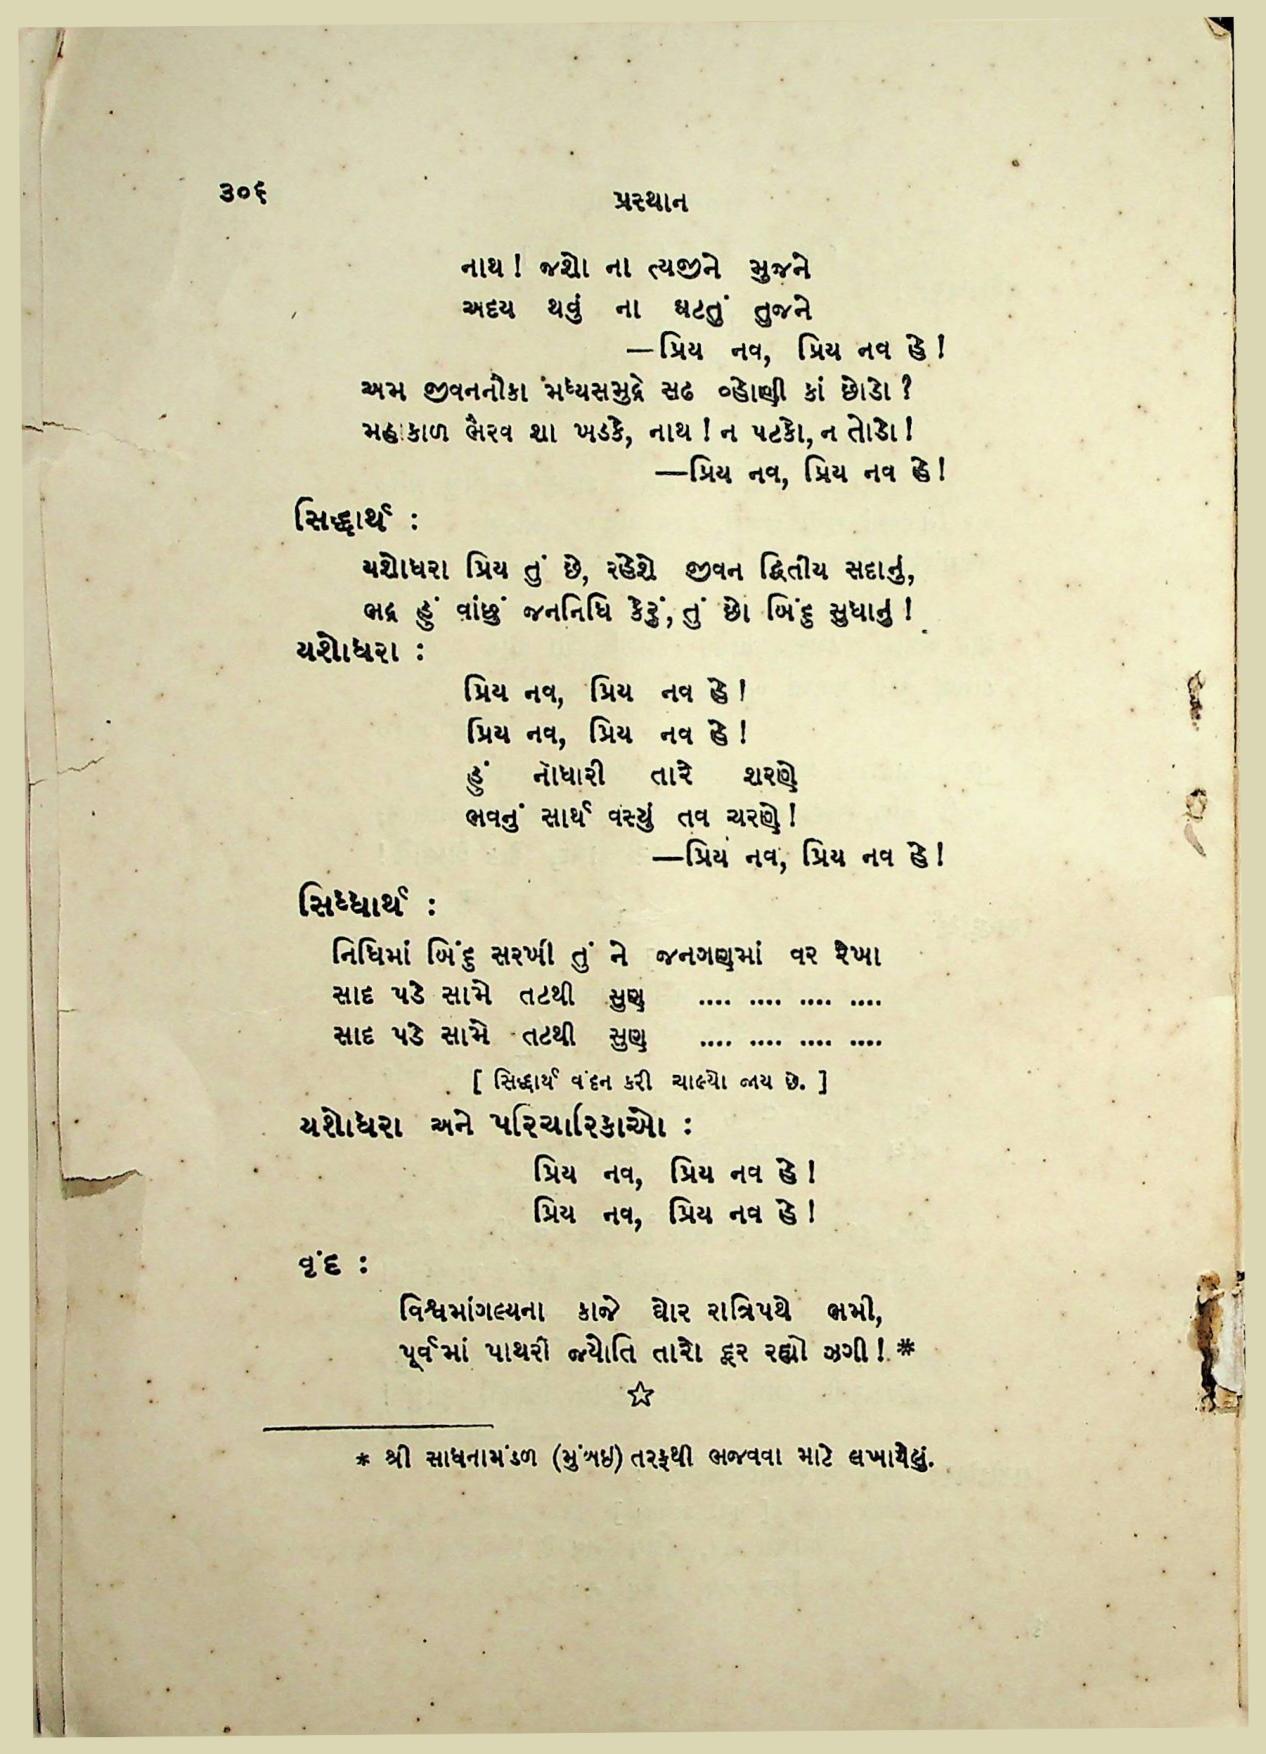 ૩૦૬
પ્રસ્થાન
નાથ! જશો ના ત્યજીને મુજને
અદય થવું ના ઘટતું તુજને
—પ્રિય નવ, પ્રિય નવ હે!
અમ જીવનનૌકા મધ્યસમુદ્રે સઢ વ્હોણી કાં છોડો?
મહાકાળ ભૈરવ શા ખડકે, નાથ! ન પટકો, ન તોડો!
—પ્રિય નવ, પ્રિય નવ હે!
સિદ્ધાર્થ :
યશોધરા પ્રિય તું છે, રહેશે જીવન દ્વિતીય સદાનું,
ભદ્ર હું વાંછું જનનિધિ કેરું, તું છો બિંદુ સુધાનું!
યશોધરા :
પ્રિય નવ, પ્રિય નવ હે!
પ્રિય નવ, પ્રિય નવ હે!
હું નોધારી તારે શરણે
ભવનું સાર્થ વસ્યું તવ ચરણે!
—પ્રિય નવ, પ્રિય નવ હે!
સિધ્ધાર્થ :
નિધિમાં બિંદુ સરખી તું ને જનગણમાં વર રેખા
સાદ પડે સામે તટથી સુણ .... .... .... ....
સાદ પડે સામે તટથી સુણ .... .... .... ....
[ સિદ્ધાર્થ વંદન કરી ચાલ્યો જાય છે. ]
યશોધરા અને પરિચારિકાઓ :
પ્રિય નવ, પ્રિય નવ હે!
પ્રિય નવ, પ્રિય નવ હે!
વૃંદ :
વિશ્વમાંગલ્યના કાજે ઘોર રાત્રિપથે ભમી,
પૂર્વમાં પાથરી જ્યોતિ તારો દૂર રહ્યો ઝગી! *
* શ્રી સાધનામંડળ (મુંબઇ) તરફથી ભજવવા માટે લખાયેલું.